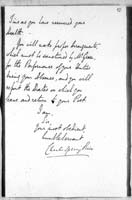 time as you have recovered your
health.
You will make proper arrangements,
which must be sanctioned by
for the Performance of your Duties
during your Absence, and you will
report the Dates on which you
leave and return to your Post
I am,
Sir,
Your most obedient,
humble Servant,